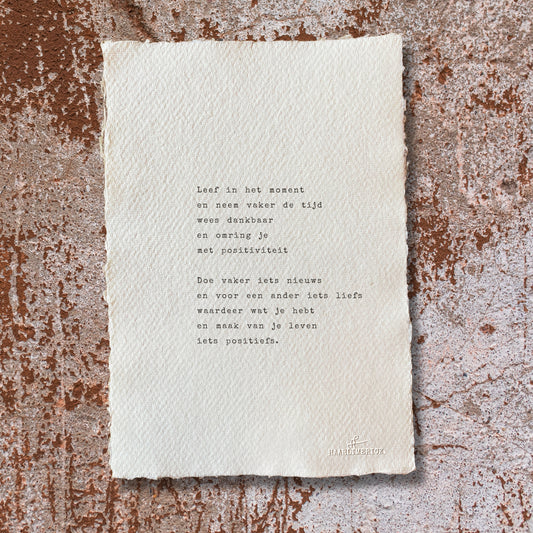 Leef in het moment
en neem vaker de tijd
wees dankbaar
en omring je
met positiviteit
Doe vaker iets nieuws
en voor een ander iets liefs
waardeer wat je hebt
en maak van je leven
iets positiefs.